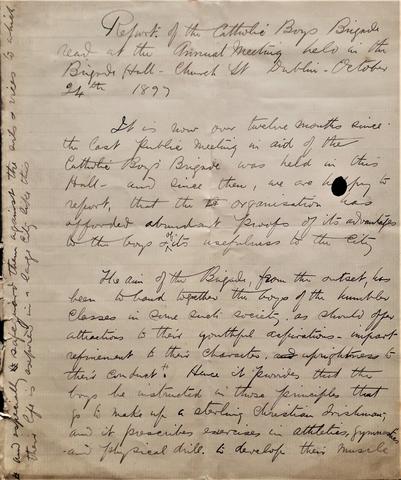 Report of the Catholic Boys Brigade
read at the Annual Meeting held in the
Brigade Hall - Church St Dublin - October
24th 1897
It is now over twelve months since
the last public meeting in aid of the
Catholic Boys Brigade was held in this
Hall - and since then, we are happy to
report, that the organisation has
afforded abundant proofs of its advantages
to the boys & of its usefulness to the City
The aim of the Brigade, from the outset, has
been to band together the boys of the humbler
classes in some such society, as should offer
attractions to their youthful aspirations - impart
refinement to their character, and uprightness to
their conduct". Hence it provides that the
boys be instructed in those principles that
go to make up a sterling Christian Irishman,
and it prescribes exercises in athletics, gymnastics
and physical drill. to develop their muscle
& and especially to safeguard them against the evils & vices to which
their life is exposed in a large city like this